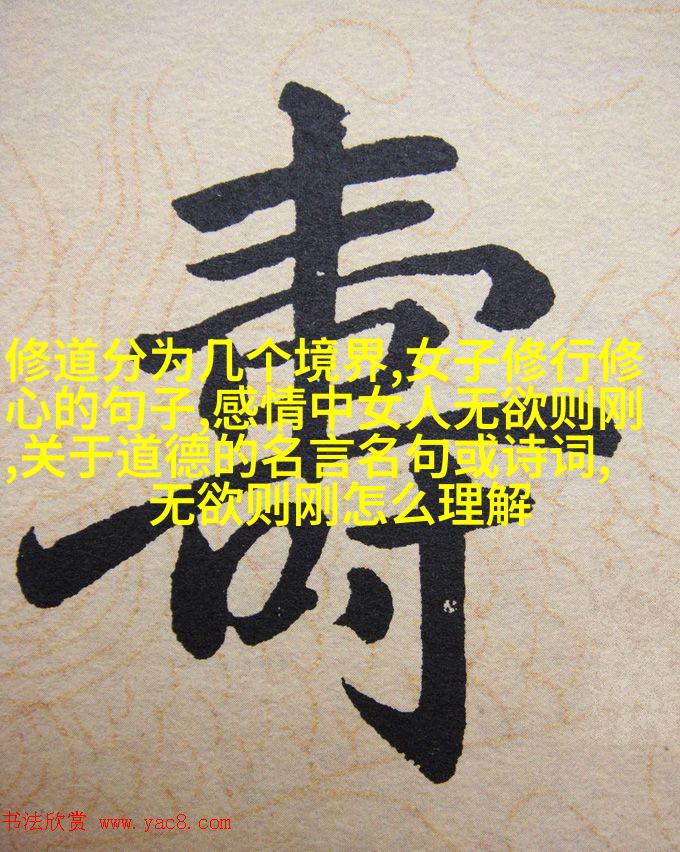 壽
修道分为几个境界,女子修行修
心的句子,感情中女人无欲则刚
,关于道德的名言名句或诗词,
无欲则刚怎么理解
书法欣赏 www.yac8.com